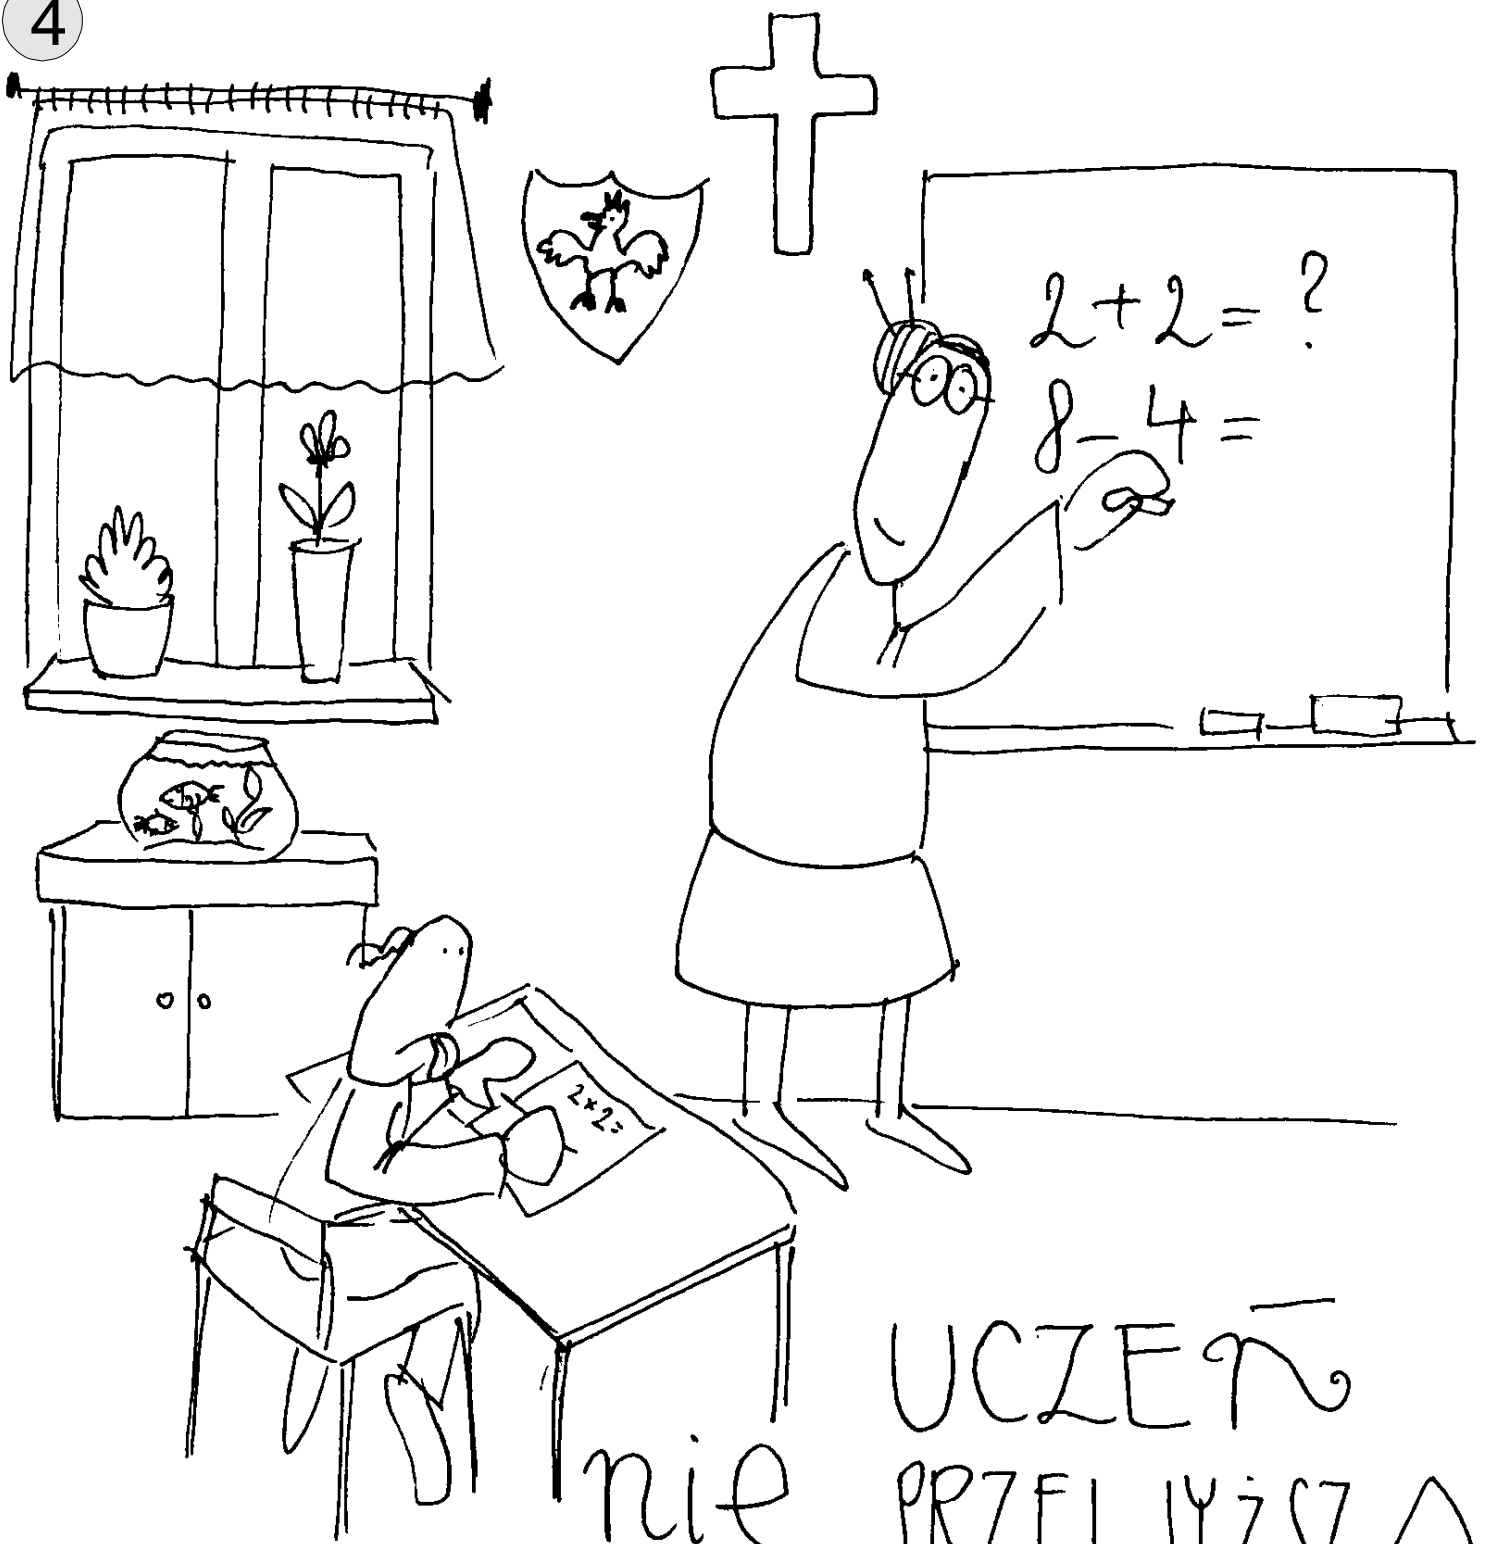 4
2+2=?
8-4=
2×2=
UCZEŃ
nie